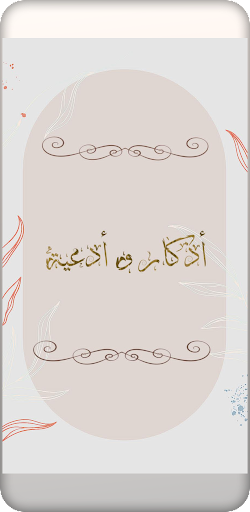 أذكار و أدعية